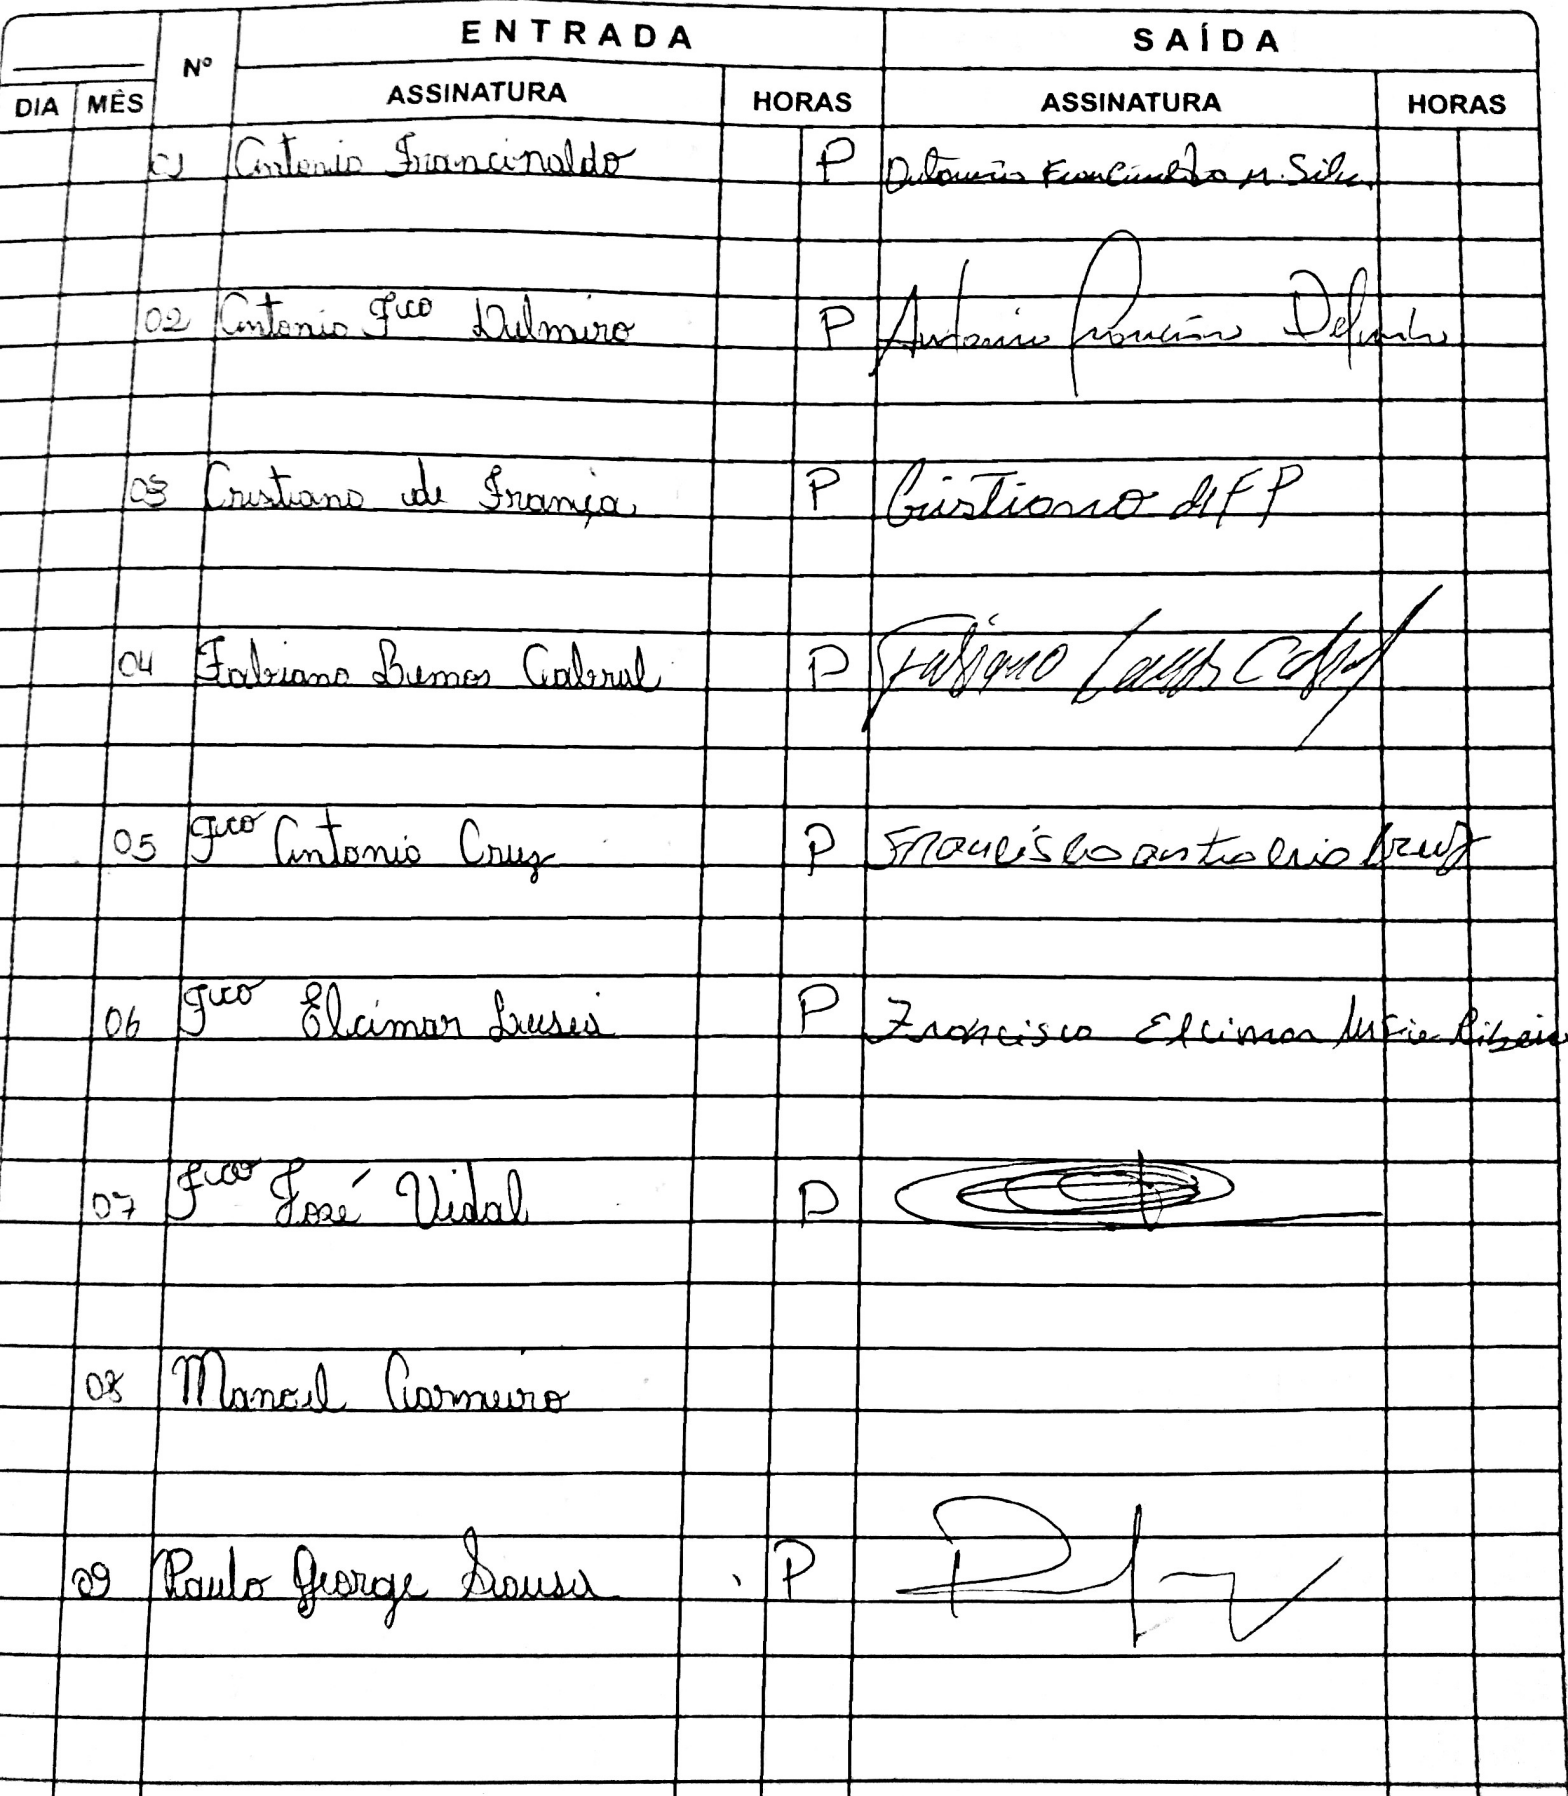 ENTRADA SAÍDA
Nº
DIA MÊS ASSINATURA HORAS ASSINATURA HORAS
01 Antonio Francinaldo P Antonio Francinaldo M. Silva
02 Antonio Fco Delmiro P Antonio Francisco Delmiro
03 Cristiano de França P Cristiano de F P
04 Fabiano Lemos Cabral P Fabiano Lemos Cabral
05 Fco Antonio Cruz P Francisco Antonio Cruz
06 Fco Elcimar P Francisco Elcimar Ribeiro
07 Fco José Vidal P
08 Manoel Carneiro
09 Paulo George Sousa P